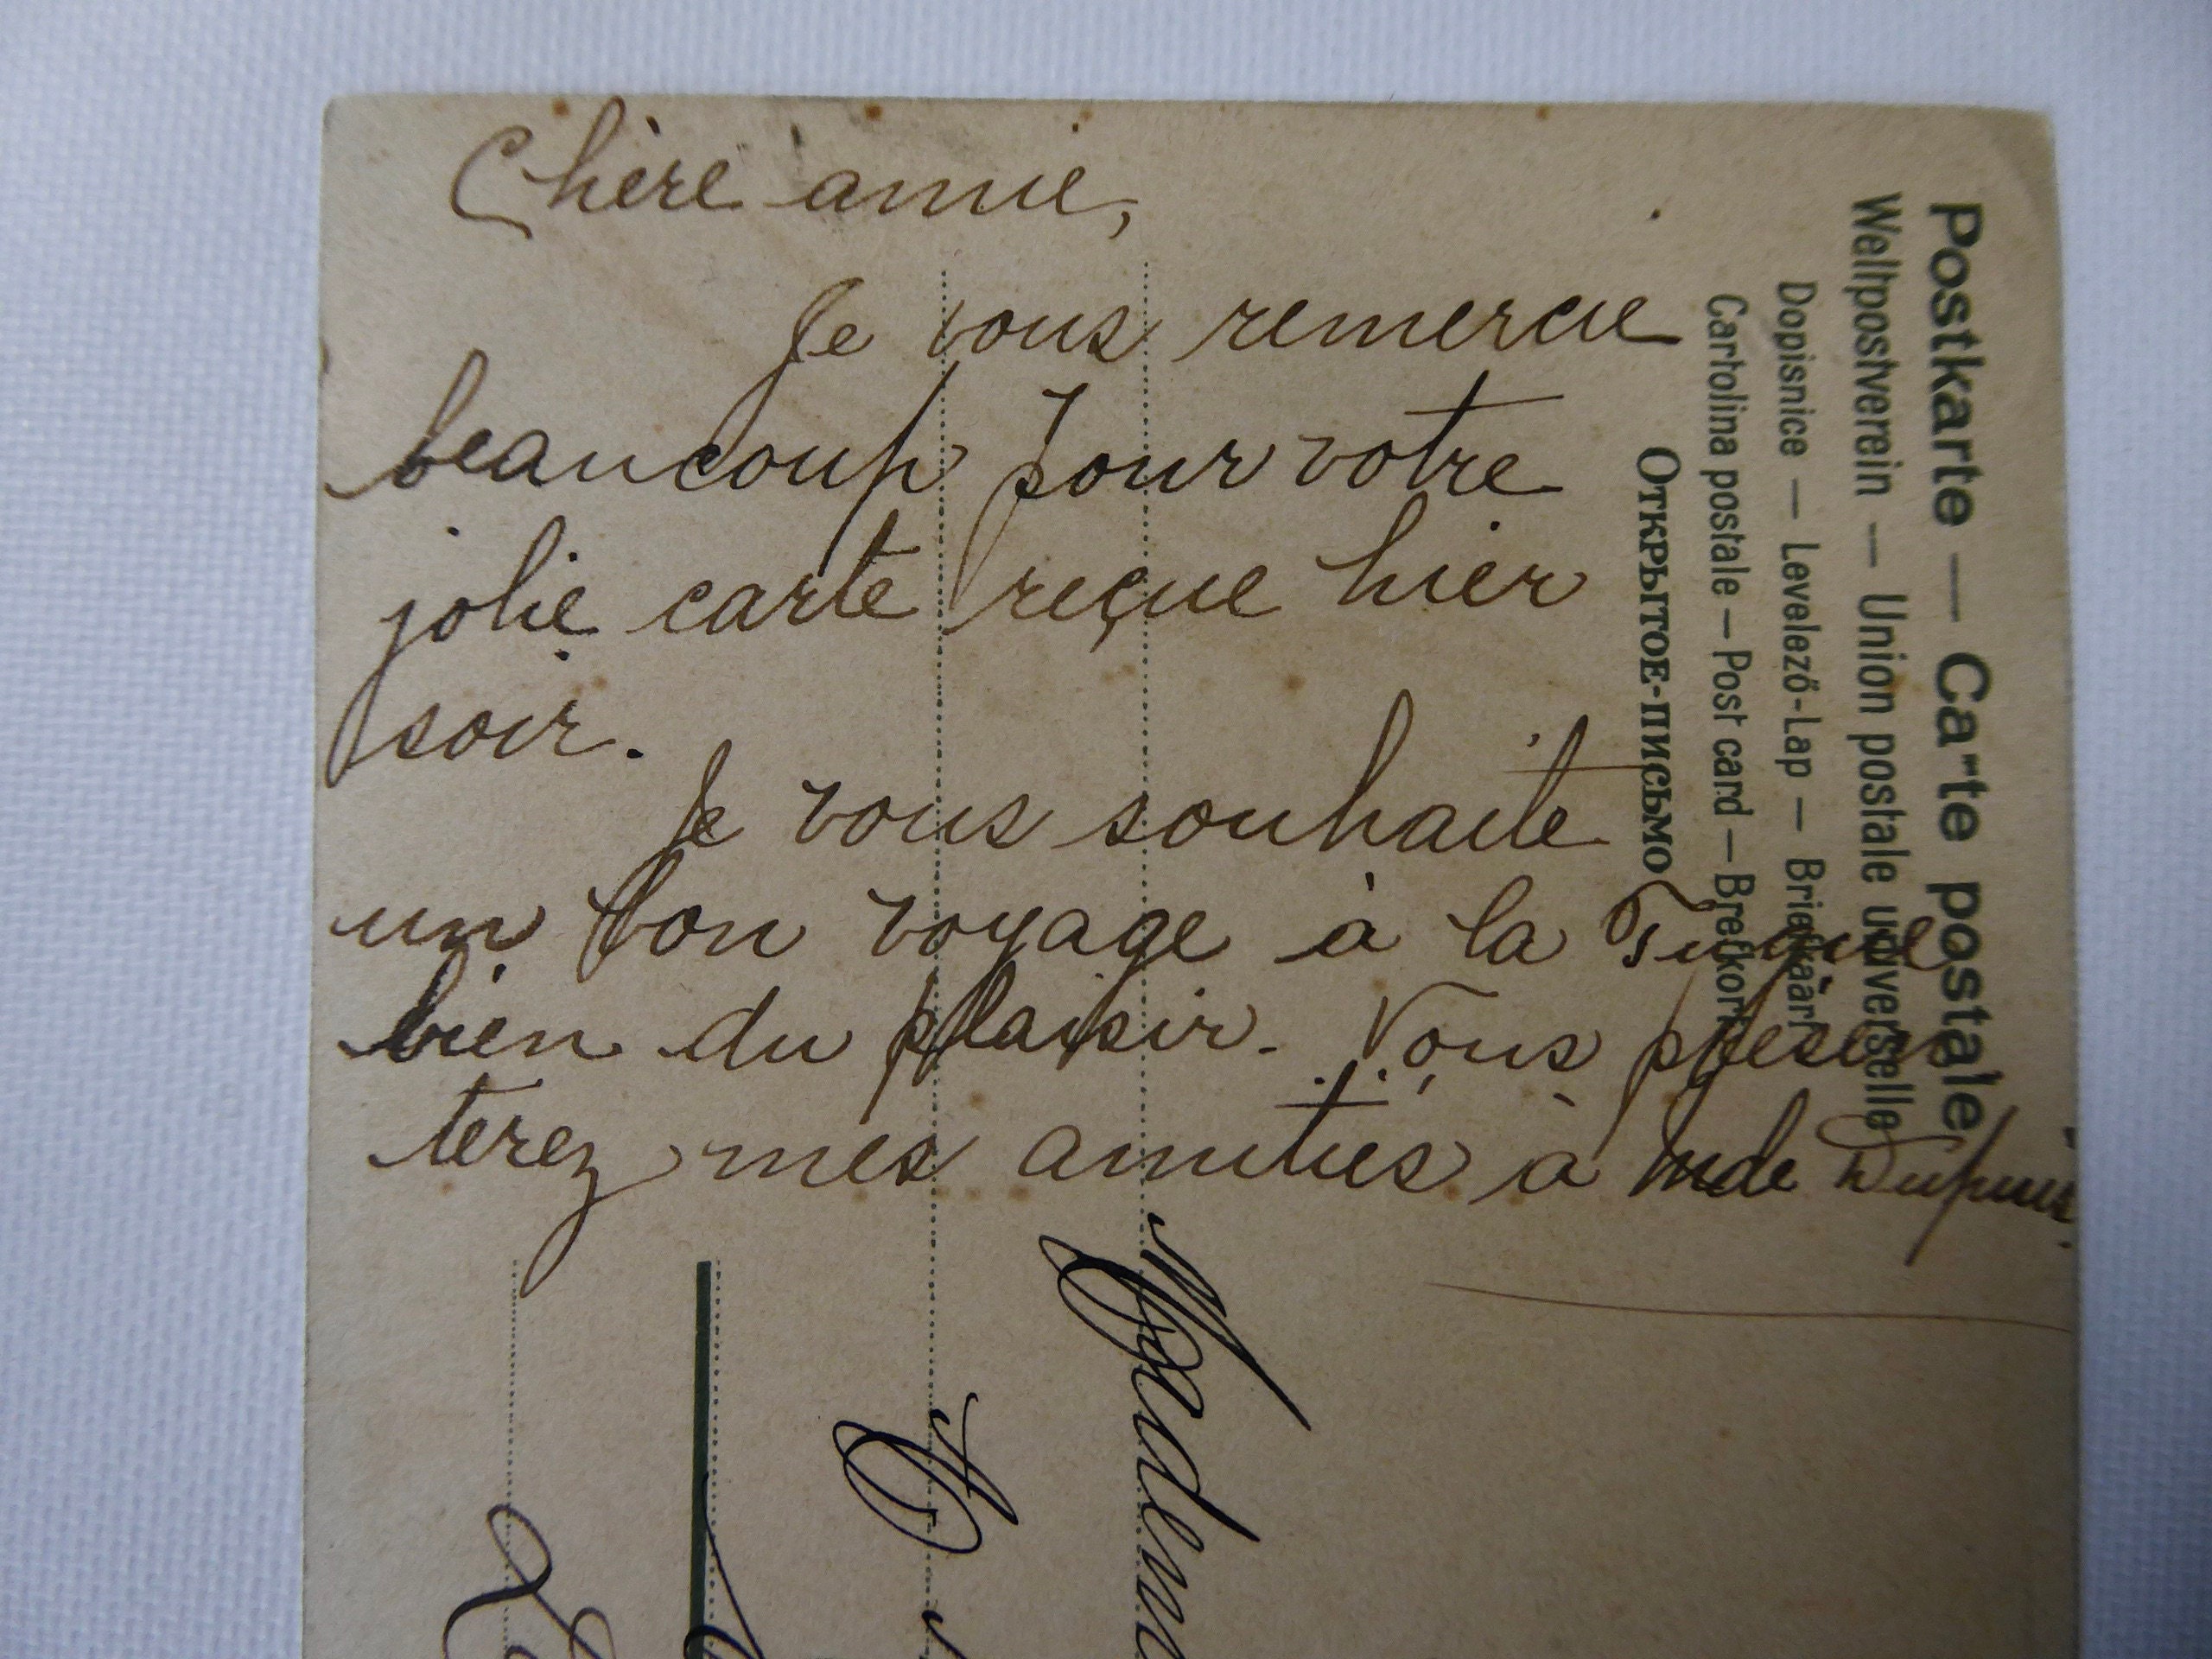 Chère amie,
Je vous remercie
beaucoup pour votre
jolie carte reçue hier
soir.
Je vous souhaite
un bon voyage à la
bien du plaisir. Vous présen
terez mes amitiés à Mde Dupuis.
Postkarte — Carte postale
Weltpostverein — Union postale universelle
Dopisnice — Levelező-Lap — Briefkaart
Cartolina postale — Post card — Brefkort
Открытое-письмо